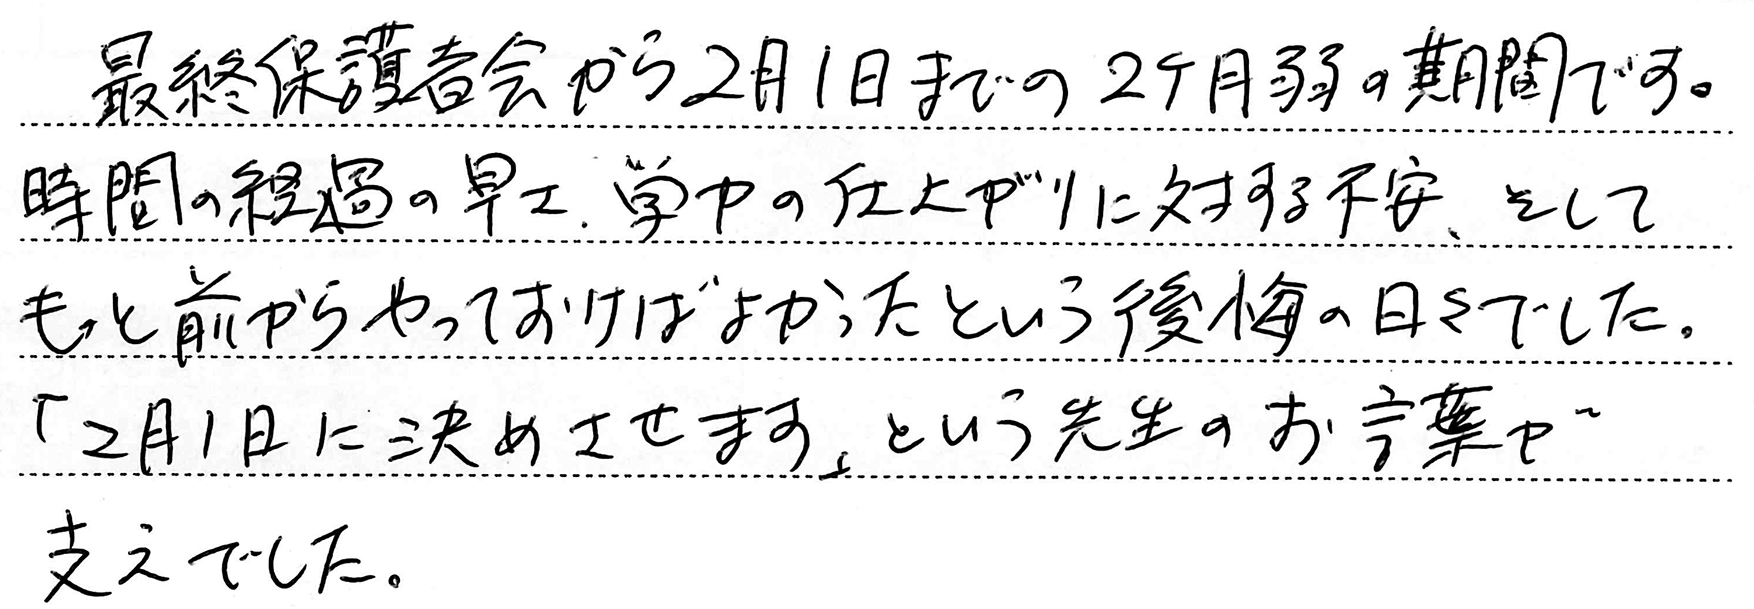 最終保護者会から2月1日までの2ケ月弱の期間です。
時間の経過の早さ、学力の仕上がりに対する不安、そして
もっと前からやっておけばよかったという後悔の日々でした。
「2月1日に決めさせます」という先生のお言葉が
支えでした。